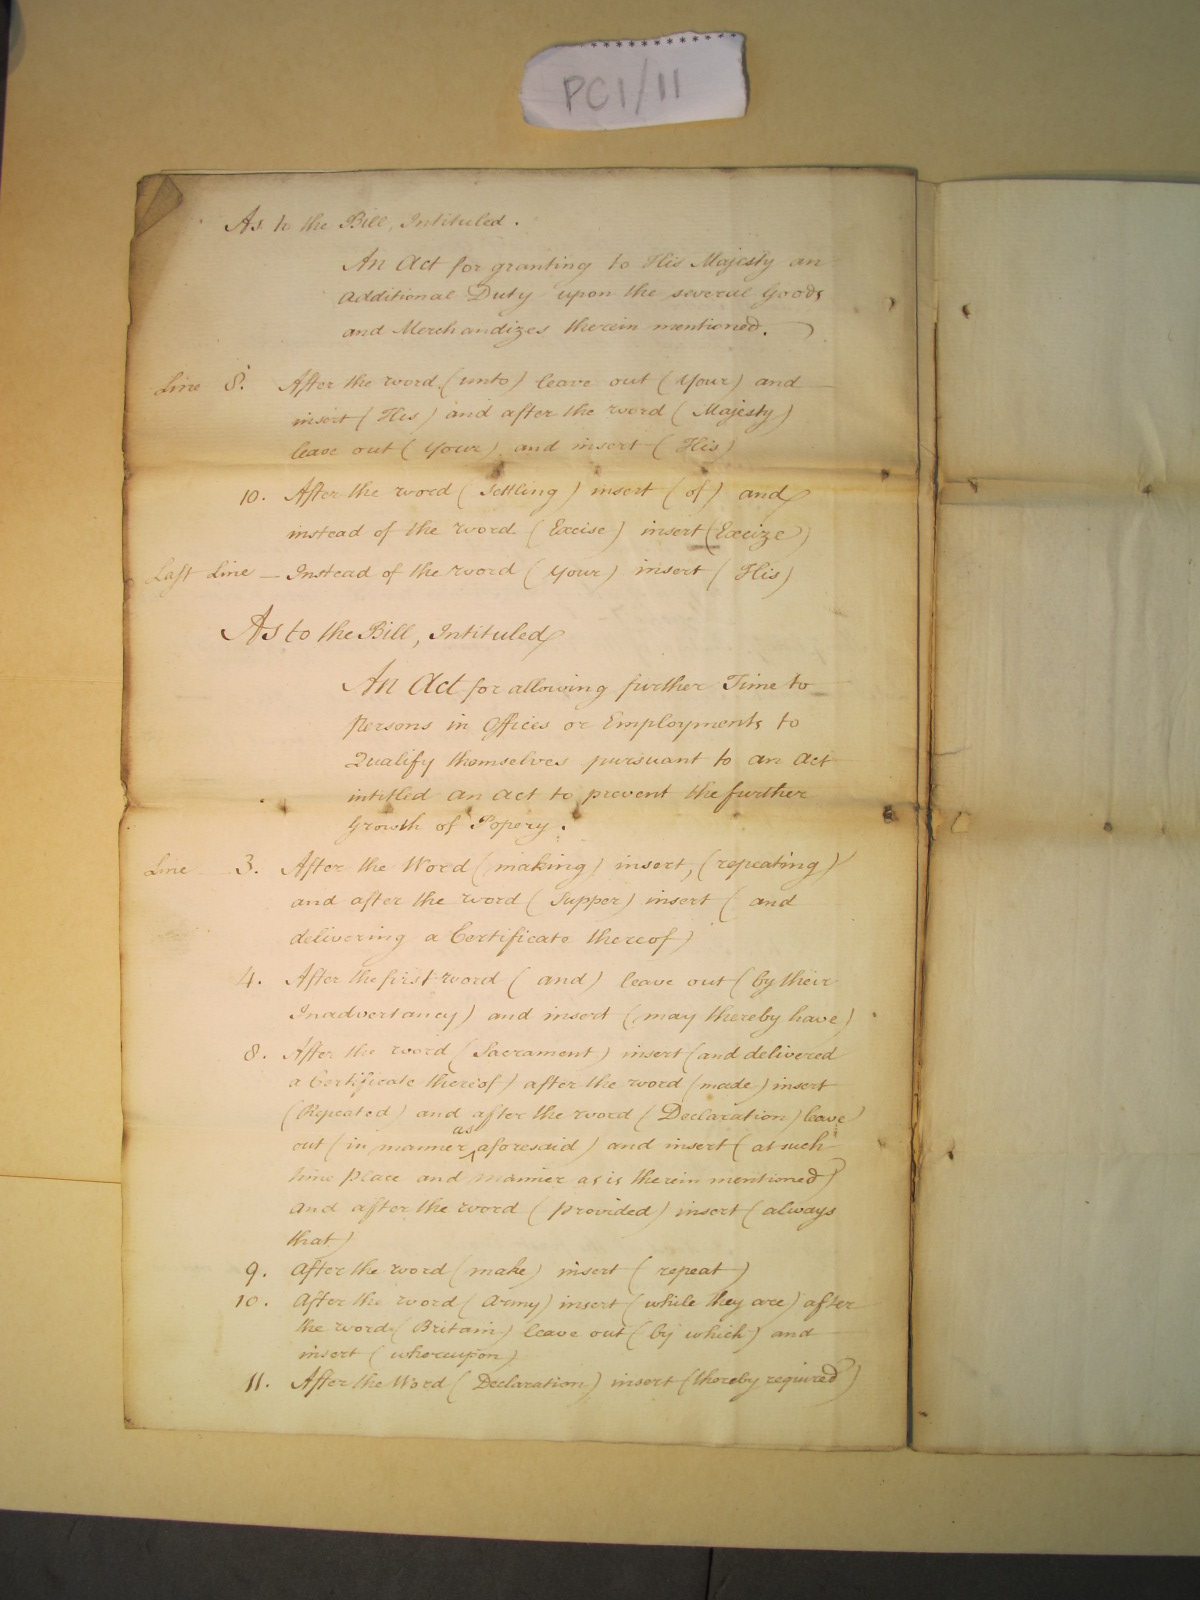 PC1/11
As to the Bill, Intituled.
An Act for granting to His Majesty an
additional Duty upon the several Goods
and Merchandizes therein mentioned.
Line 8. After the word (unto) leave out (Your) and
insert (His) and after the word (Majesty)
leave out (Your) and insert (His)
10. After the word (Settling) insert (of) and
instead of the word (Excise) insert (Excize)
Last Line — Instead of the word (Your) insert (His)
As to the Bill, Intituled
An Act for allowing further Time to
Persons in Offices or Employments to
Qualify themselves pursuant to an Act
intitled an Act to prevent the further
Growth of Popery.
Line 3. After the Word (making) insert, (repeating)
and after the word (Supper) insert (and
delivering a Certificate thereof)
4. After the first word (and) leave out (by their
Inadvertancy) and insert (may thereby have)
8. After the word (Sacrament) insert (and delivered
a Certificate thereof) after the word (made) insert
(Repeated) and after the word (Declaration) leave
out (in manner as aforesaid) and insert (at such
time place and manner as is therein mentioned)
and after the word (provided) insert (always
that)
9. After the word (make) insert (repeat)
10. After the word (Army) insert (while they are) after
the word (Britain) leave out (by which) and
insert (whereupon)
11. After the Word (Declaration) insert (thereby required)